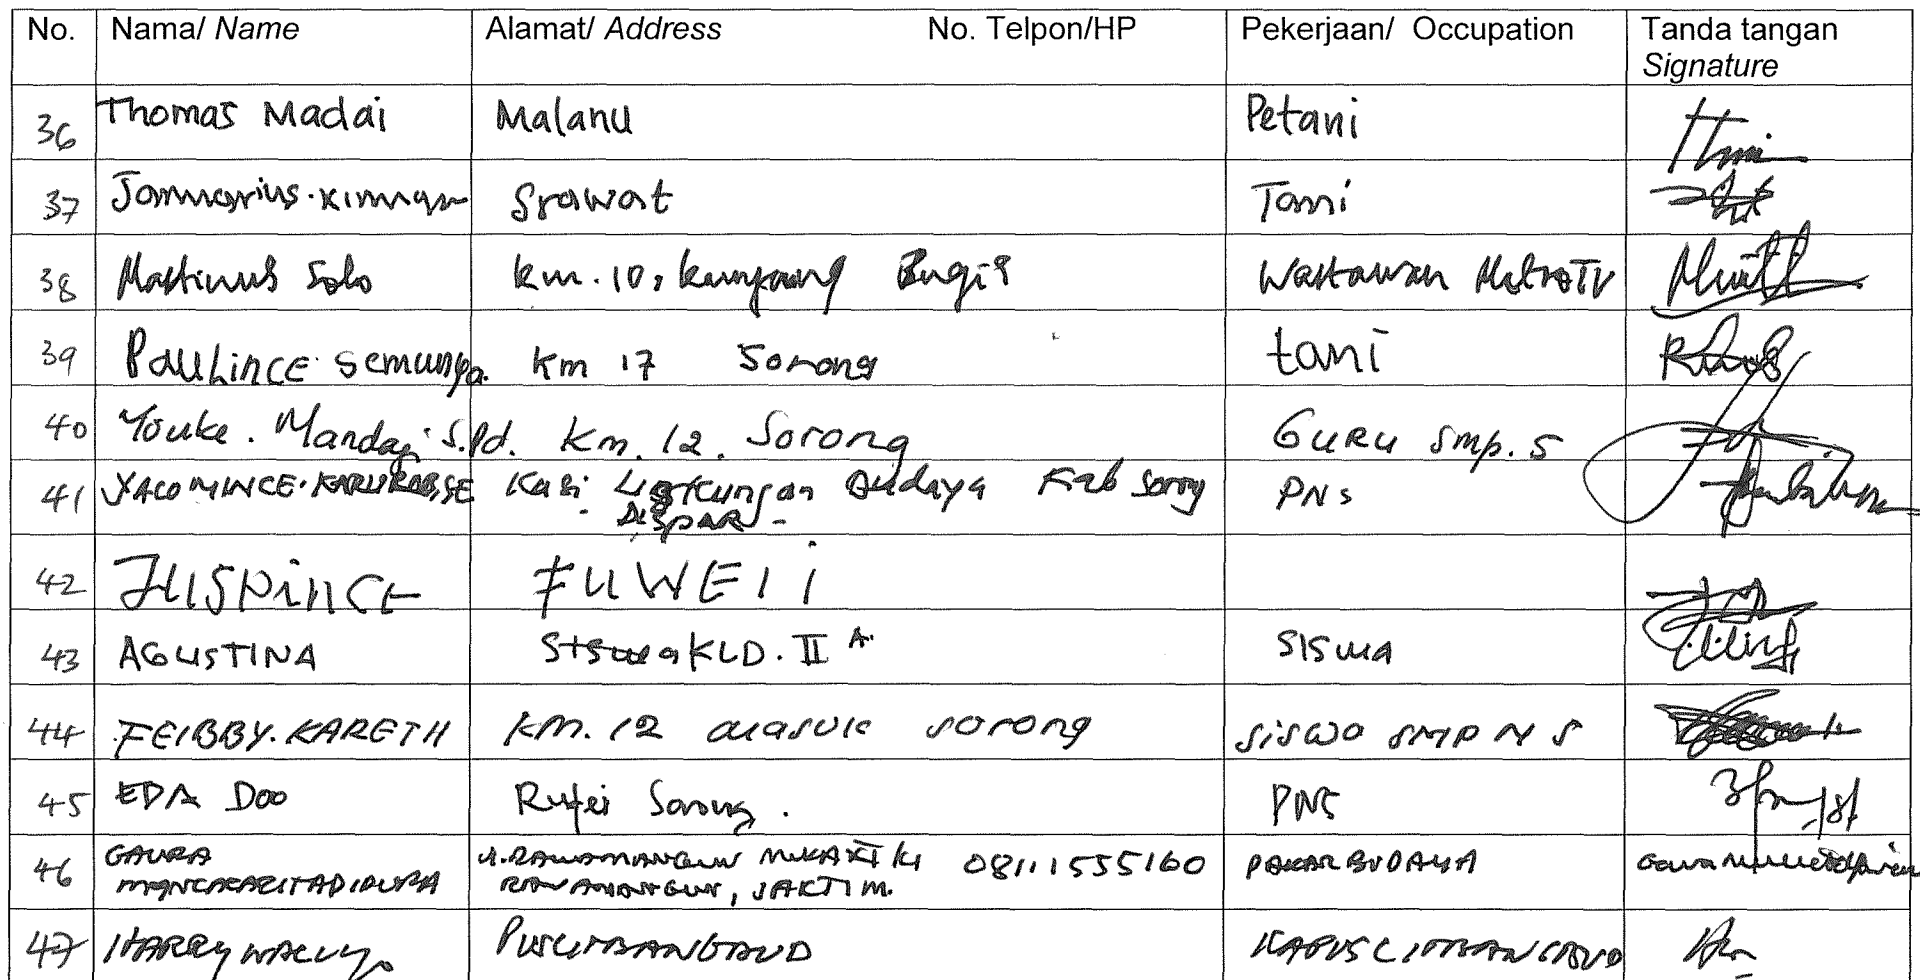 No. Nama/ Name Alamat/ Address No. Telpon/HP Pekerjaan/ Occupation Tanda tangan
Signature
36 Thomas Madai Malanu Petani
37 Srawat Tani
38 Martinus Solo Km. 10, Kampung Bugis Wartawan MetroTV
39 Paulince Semunya. Km 17 Sorong tani
40 Youke. Mandagi S.Pd. Km. 12. Sorong GURU Smp. 5
41 YACOMINCE. KARURABSE Kasi Lingkungan Budaya Kab Sorong PNS
DISPAR -
42 JUSPINCE
43 AGUSTINA KLD. II A. SISWA
44 FEIBBY. KARETH KM. 12 masuk sorong SISWO SMP N 5
45 EDA Doo Rufei Sorong. PNS
46 GAURA Jl. RAWAMANGUN MUKA 08111555160 PAKAR BUDAYA
MANCACARITADIPURA RAWAMANGUN, JAKTIM.
47 HARRY WALUYO PUSLITBANGBUD